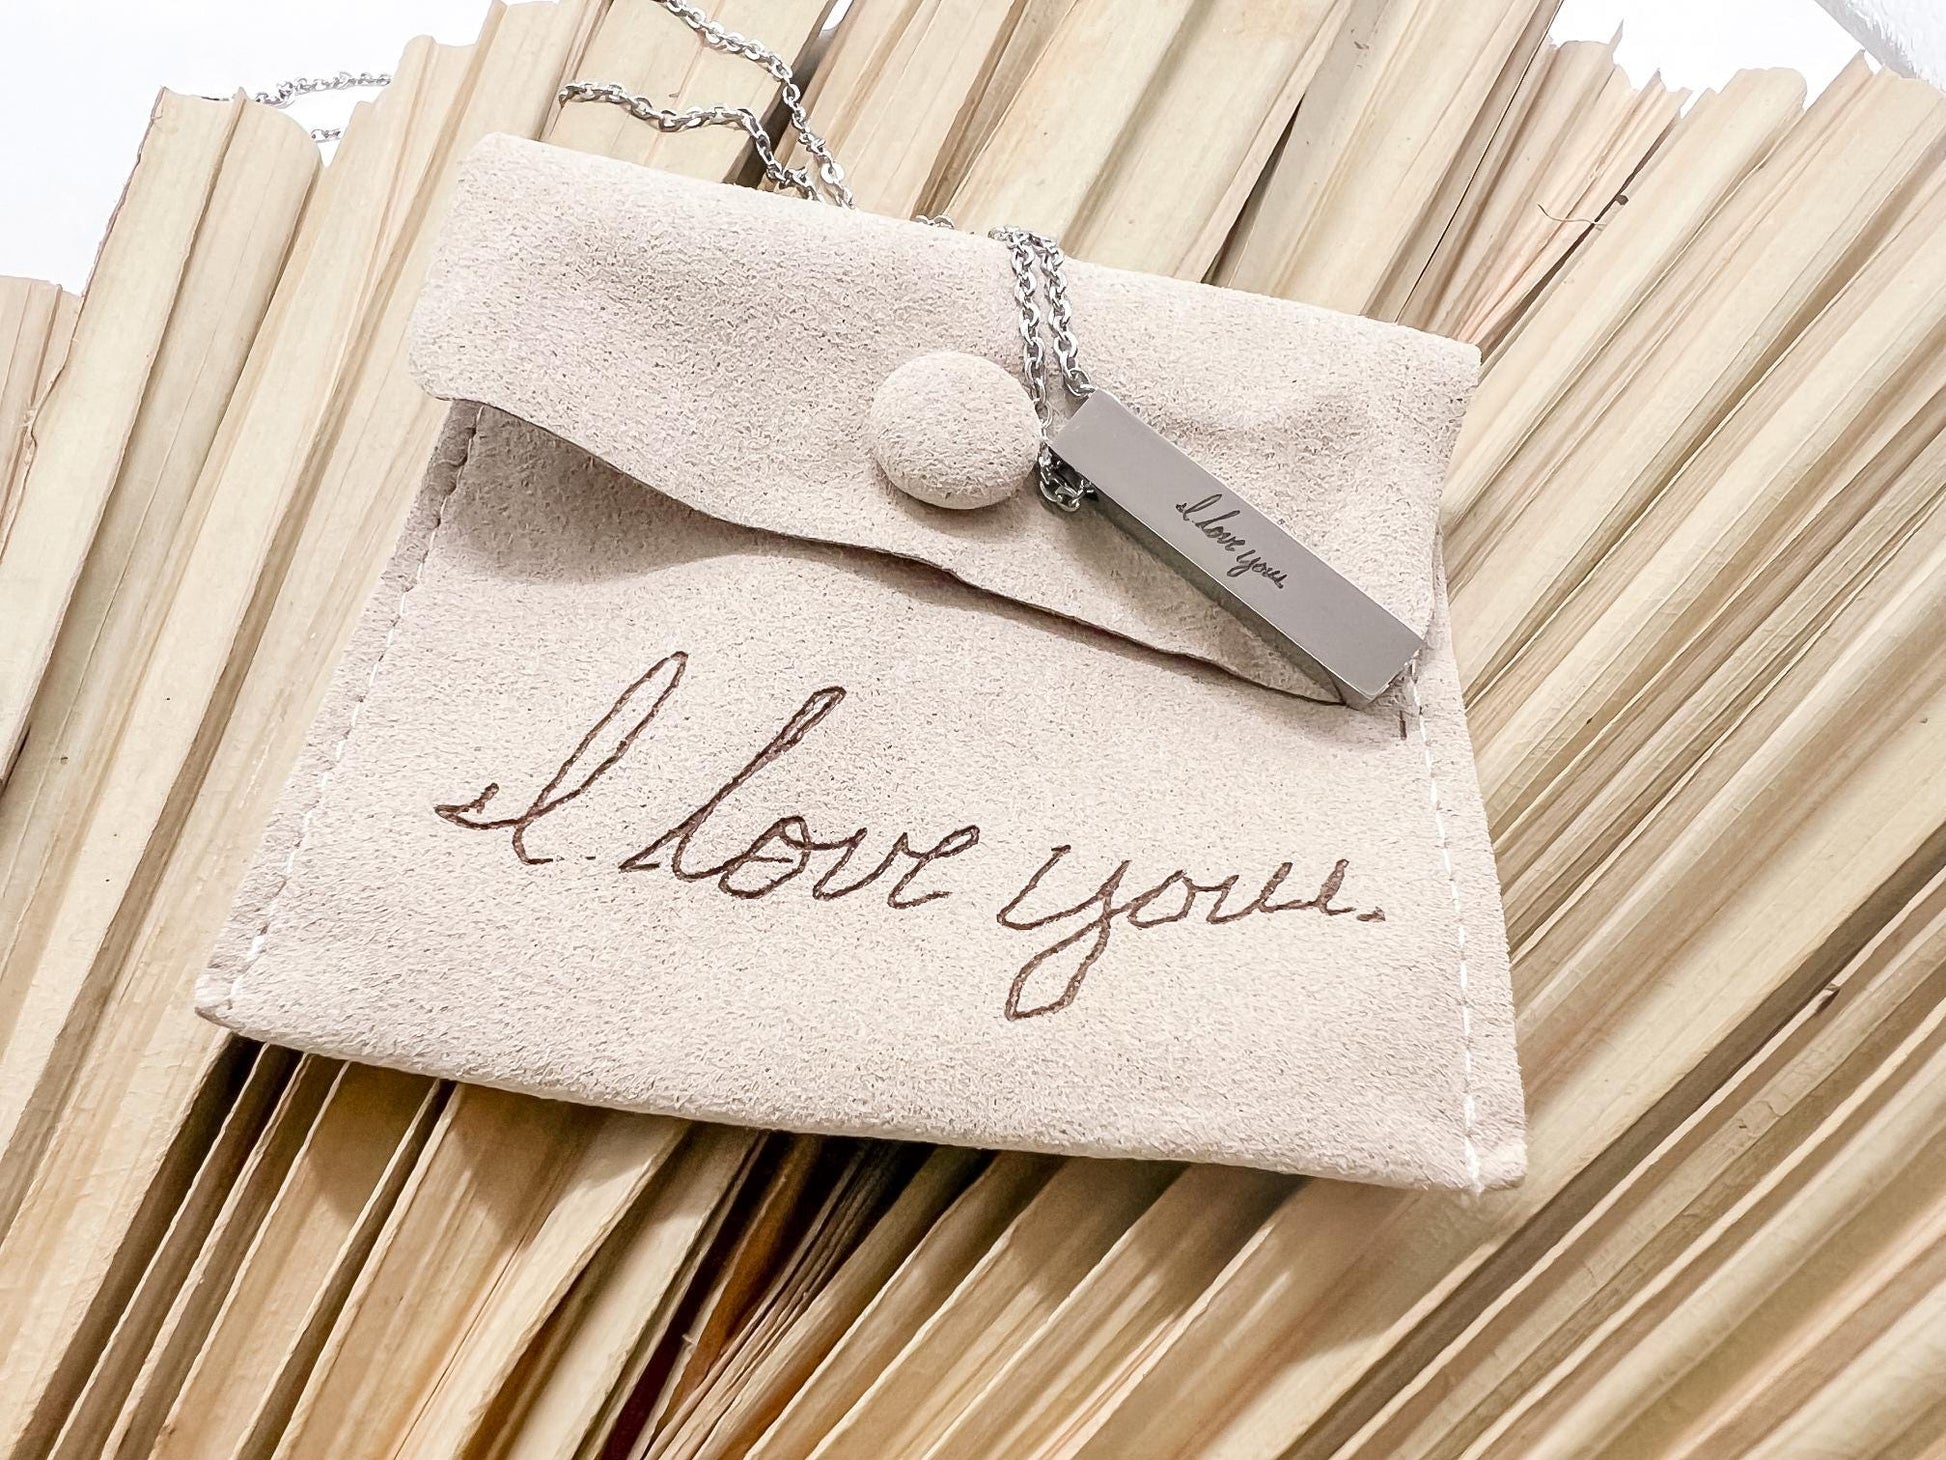 I love you.
I love you.